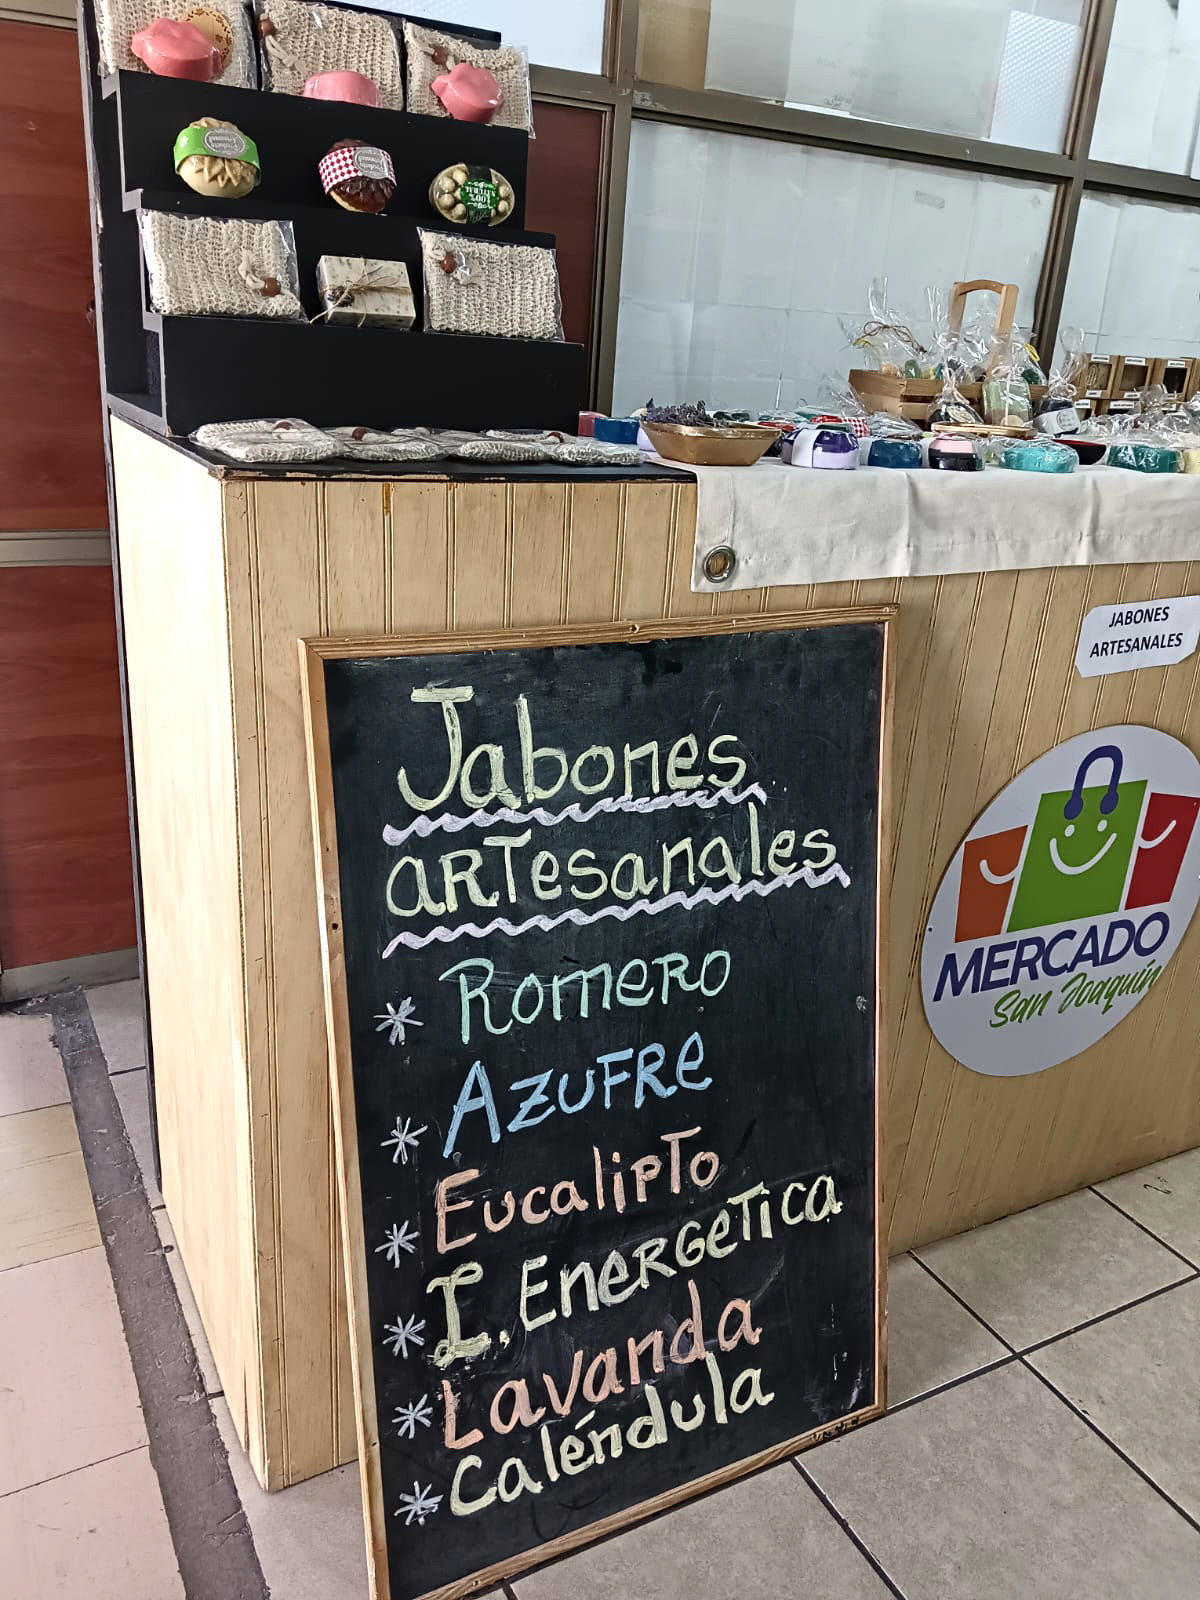 100% NATURAL
JABONES
ARTESANALES
Jabones
aRTesanales
* RomeRo
* AZUFRe
* EucalipTo
* I. EneRGeTica
* Lavanda
* Caléndula
MERCADO
San Joaquín